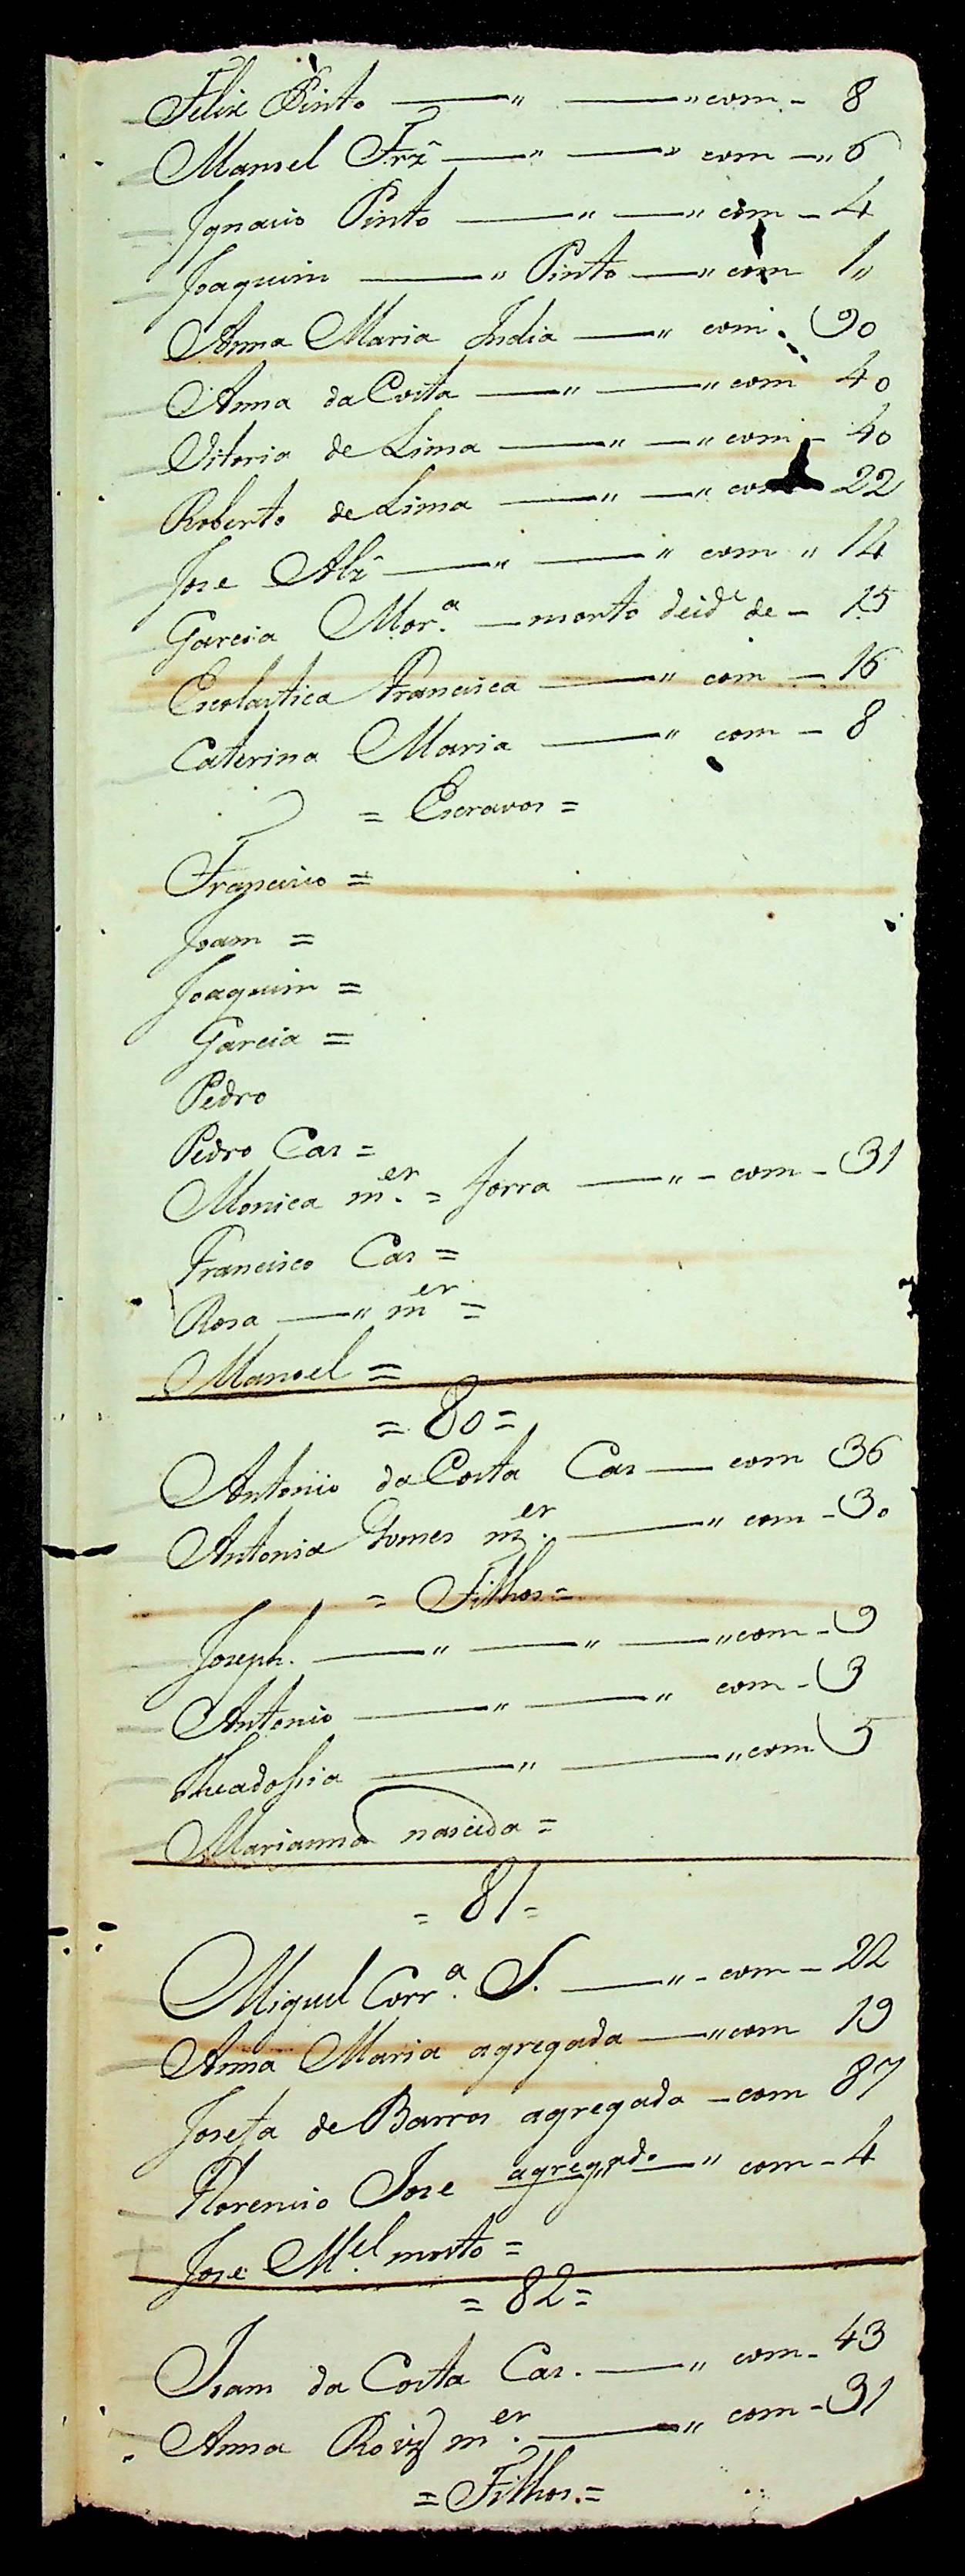 Felix Pinto —" —" com - 8
Manoel Frz —" —" com —" 6
Ignacio Pinto —" —" com - 4
Joaquim —" Pinto —" com 1"
Anna Maria India —" com. 90
Anna da Costa —" —" com 40
Vitoria de Lima —" —" com - 40
Roberto de Lima —" —" com 22
Jose Alz —" —" com " 14
Garcia Mor.ª — morto deid.e de - 15
Escolastica Francisca —" com — 16
Caterina Maria —" com - 8
= Escravos =
Francisco =
Joam =
Joaquim =
Garcia =
Pedro
Pedro Cas =
Monica m.er = forra —" - com - 31
Francisco Cas =
Rosa —" m.er =
Manoel =
= 80 =
Antonio da Costa Cas — com 36
Antonia Gomes m.er —" com - 30
= Filhos =
Joseph. —" —" —" com - 9
Antonio —" —" com - 3
Theadossia —" —" com 5
Marianna nascida =
= 81 =
Miguel Corr.ª S. —" - com - 22
Anna Maria agregada —" com 19
Josefa de Barros agregada - com 87
Florencio Jose agregado —" com - 4
Jose M.el morto =
= 82 =
Joam da Costa Cas. —" com - 43
Anna Roiz m.er —" com - 31
= Filhos. =